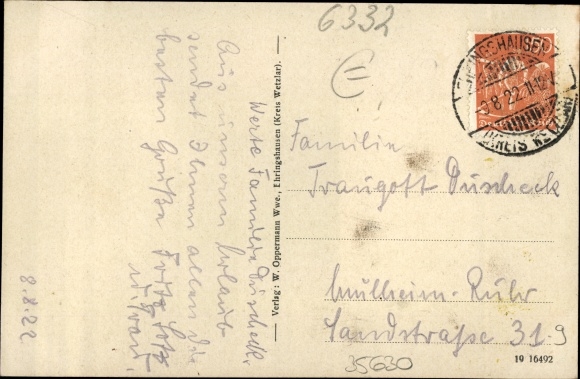 6332
EHRINGSHAUSEN
-9.8.22.11-12V.
(KREIS WETZLAR)
Familie
Traugott Duscheck
Mülheim-Ruhr
Sandstraße 31.
35630
19 16492
Verlag: W. Oppermann Wwe., Ehringshausen (Kreis Wetzlar).
Werte Familie Duscheck.
Aus unserm Urlaub
sendet Ihnen allen die
besten Grüße Fritz
u. Frau.
8.8.22